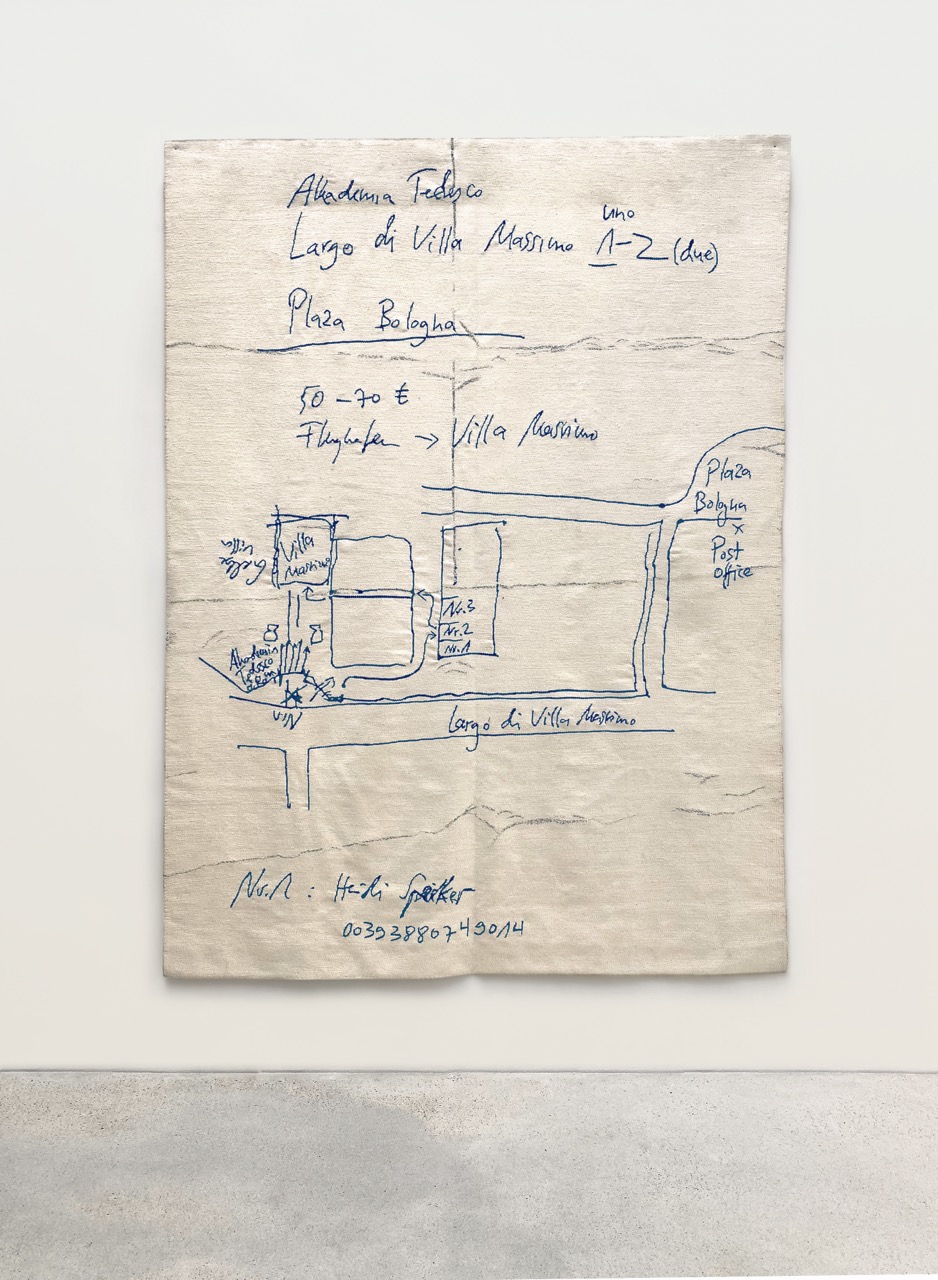 Akademia Tedesco
uno
Largo di Villa Massimo 1-2 (due)
Plaza Bologna
50-70 €
Flughafen → Villa Massimo
Plaza
Bologna
x
Post
office
Villa
Massimo
Gelbe
Villa
Nr.3
Nr.2
Nr.1
Tedesco
Largo di Villa Massimo
Nr.1 : Heidi Specker
00393880749014